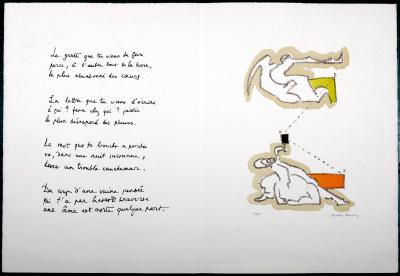 Le geste que tu viens de faire
perce, à l'autre bout de la terre,
le plus abandonné des cœurs.
La lettre que tu viens d'écrire
à qui ? fera chez qui ? jaillir
le plus désespéré des pleurs.
Le mot que ta bouche a perdu
va, dans une nuit inconnue,
lever un trouble cauchemar.
Du coup d'une vaine pensée
qui t'a par hasard traversée
une âme est morte quelque part.